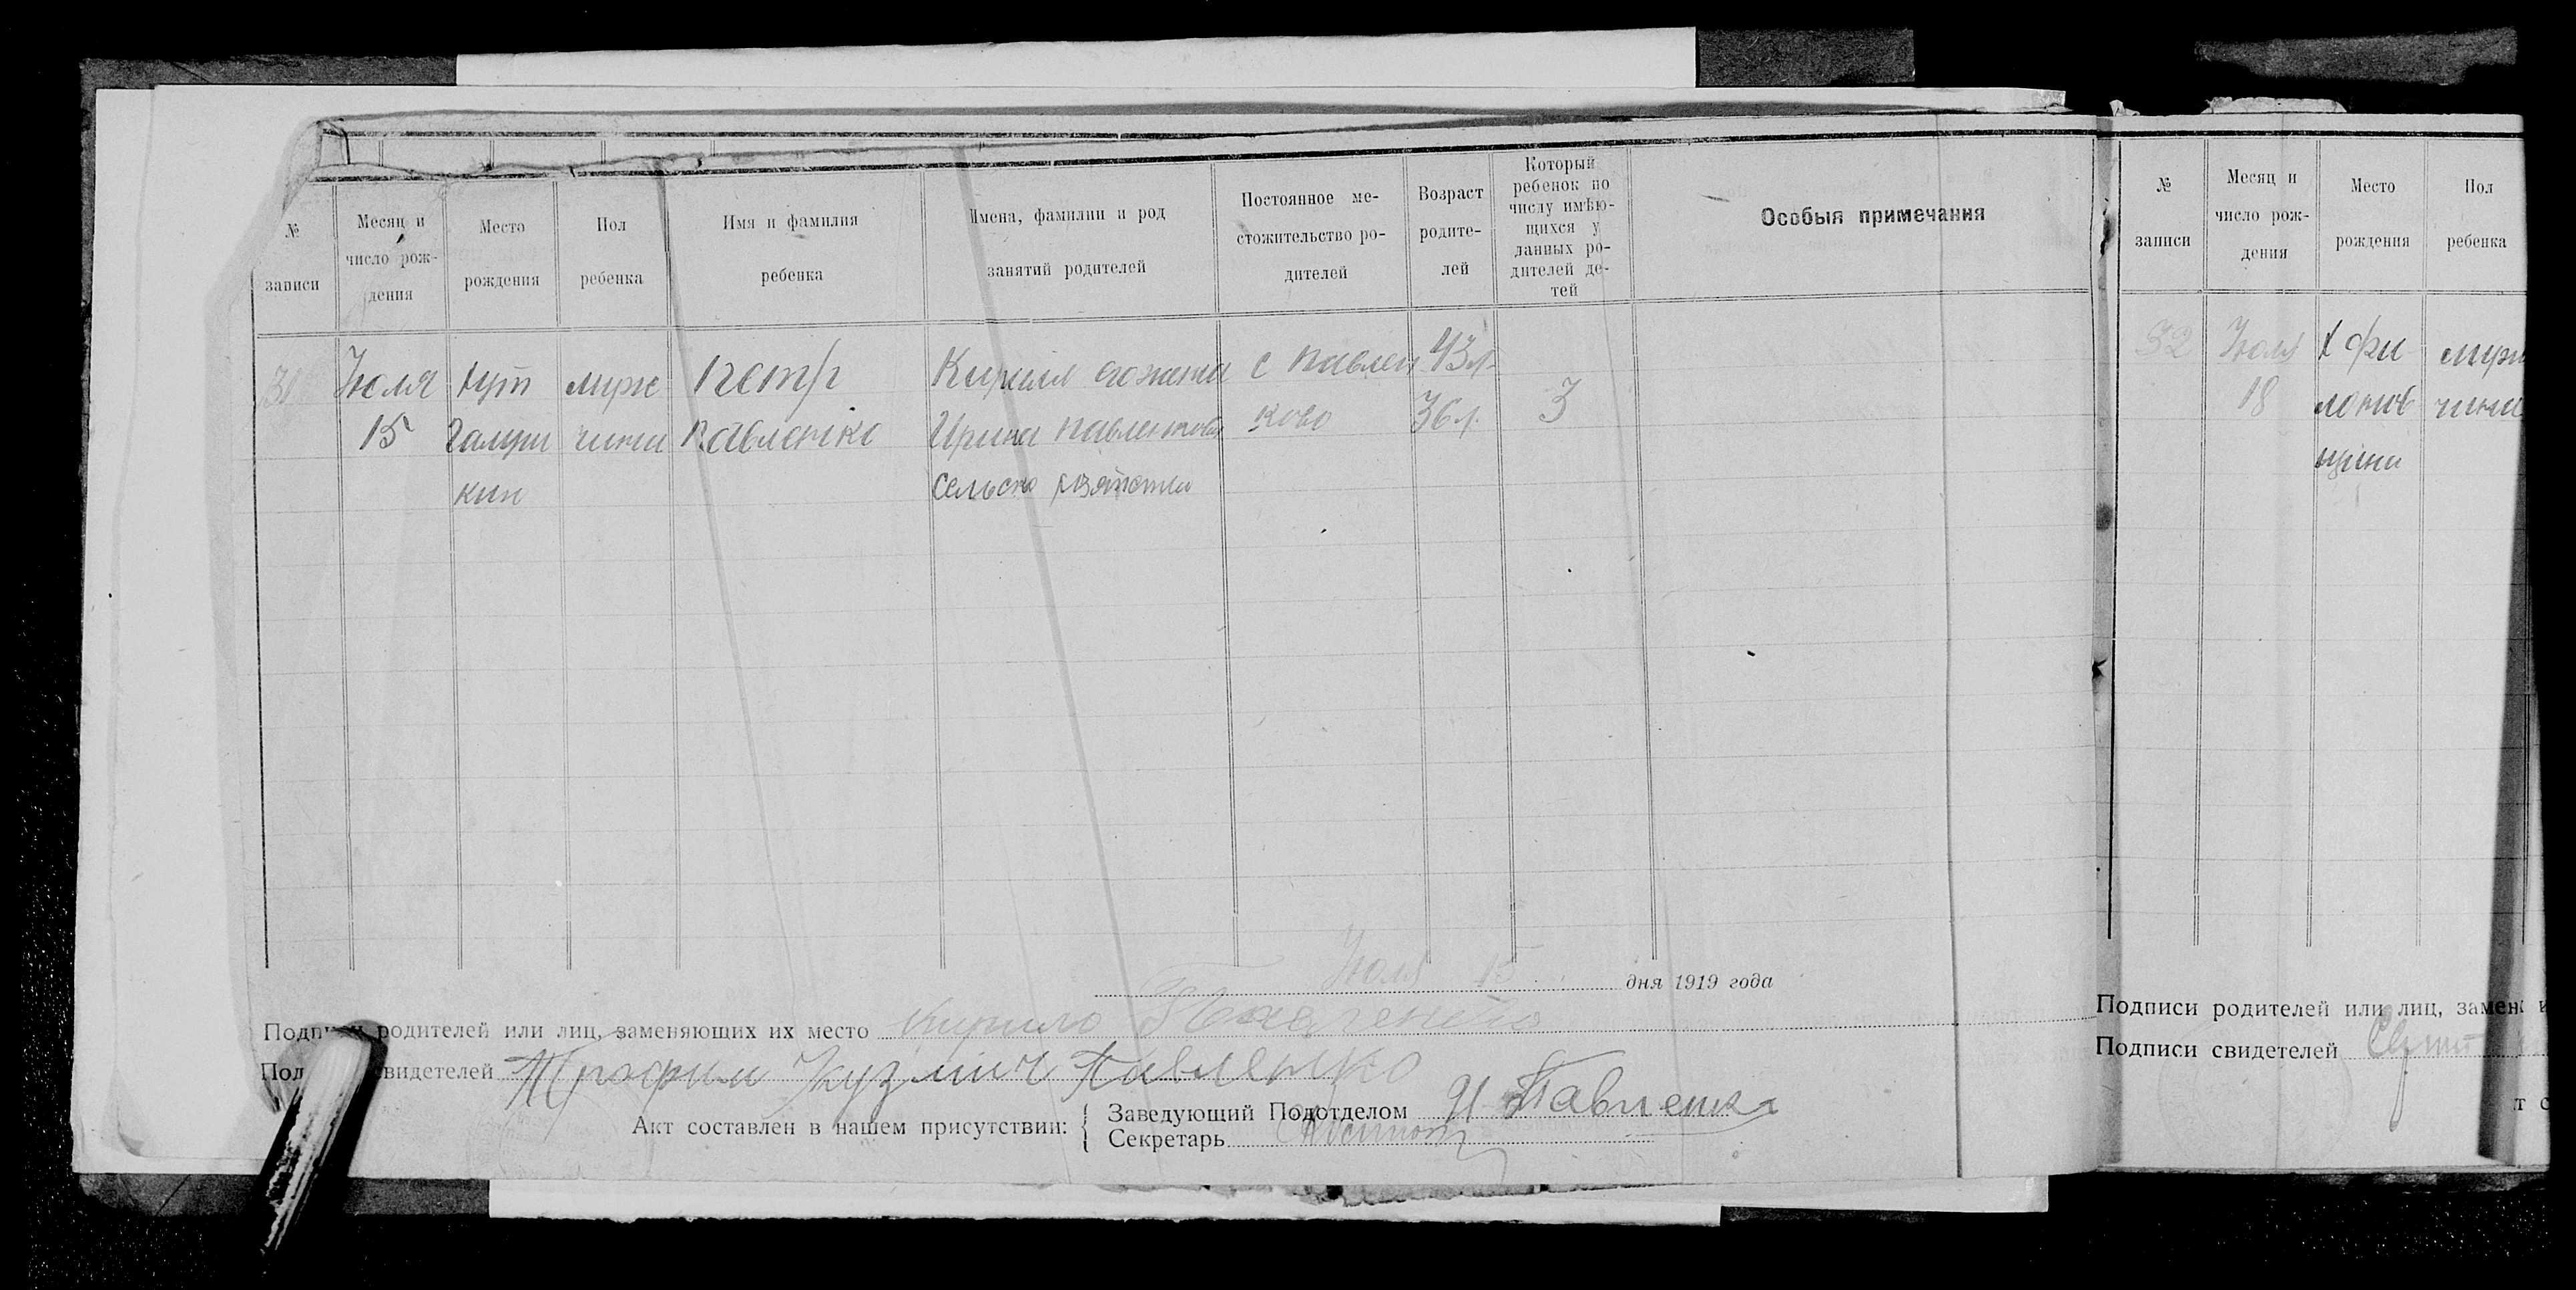 № записи
Месяц и число рождения
Место рождения
Пол ребенка
Имя и фамилия ребенка
Имена, фамилии и род занятий родителей
Постоянное местожительство родителей
Возраст родителей
Который ребенок по числу имѣющихся у данных родителей детей
Особыя примечания
31 Июля хут мужс Петр Кирилл с Павлен 43 л.
15 Галуш чини Павленко Ирина Павленкова ково 36 л. 3
кин Сельско
Июля 15 дня 1919 года
Подписи родителей или лиц, заменяющих их место Кирило Павленко
свидетелей Трофим Кузмич Павленко
Акт составлен в нашем присутствии:
Заведующий Подотделом И Павленко
Секретарь
№ записи
Месяц и число рождения
Место рождения
Пол ребенка
32 Июля Х Фи муж
18 лонов чини
щини
Подписи родителей или лиц, замен
Подписи свидетелей